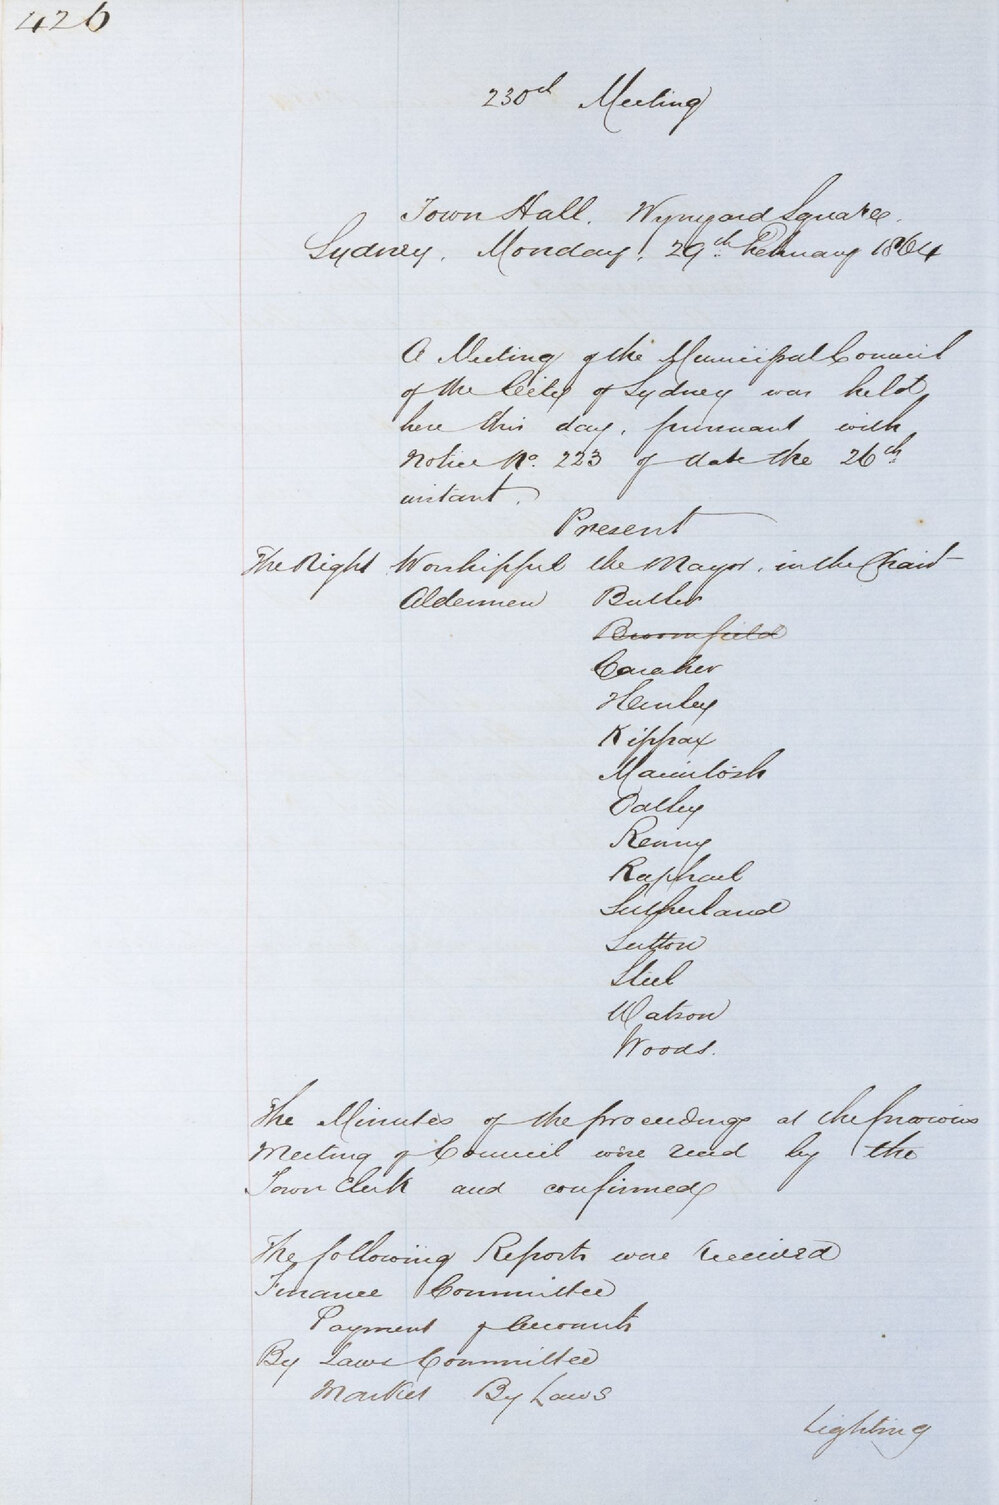 426
230th Meeting
Town Hall. Wynyard Square.
Sydney. Monday, 29th February 1864
A Meeting of the Municipal Council
of the City of Sydney was held
here this day, pursuant with
Notice No. 223 of date the 26th
instant.
Present
The Right Worshipful the Mayor, in the Chair
Aldermen Butler
Broomfield
Caraher
Henley
Kippax
Macintosh
Oatley
Renny
Raphael
Sutherland
Sutton
Steel
Watson
Woods.
The Minutes of the proceedings at the previous
Meeting of Council were read by the
Town Clerk and confirmed
The following Reports were received
Finance Committee
Payment of Accounts
By Laws Committee
Market By Laws
Lighting